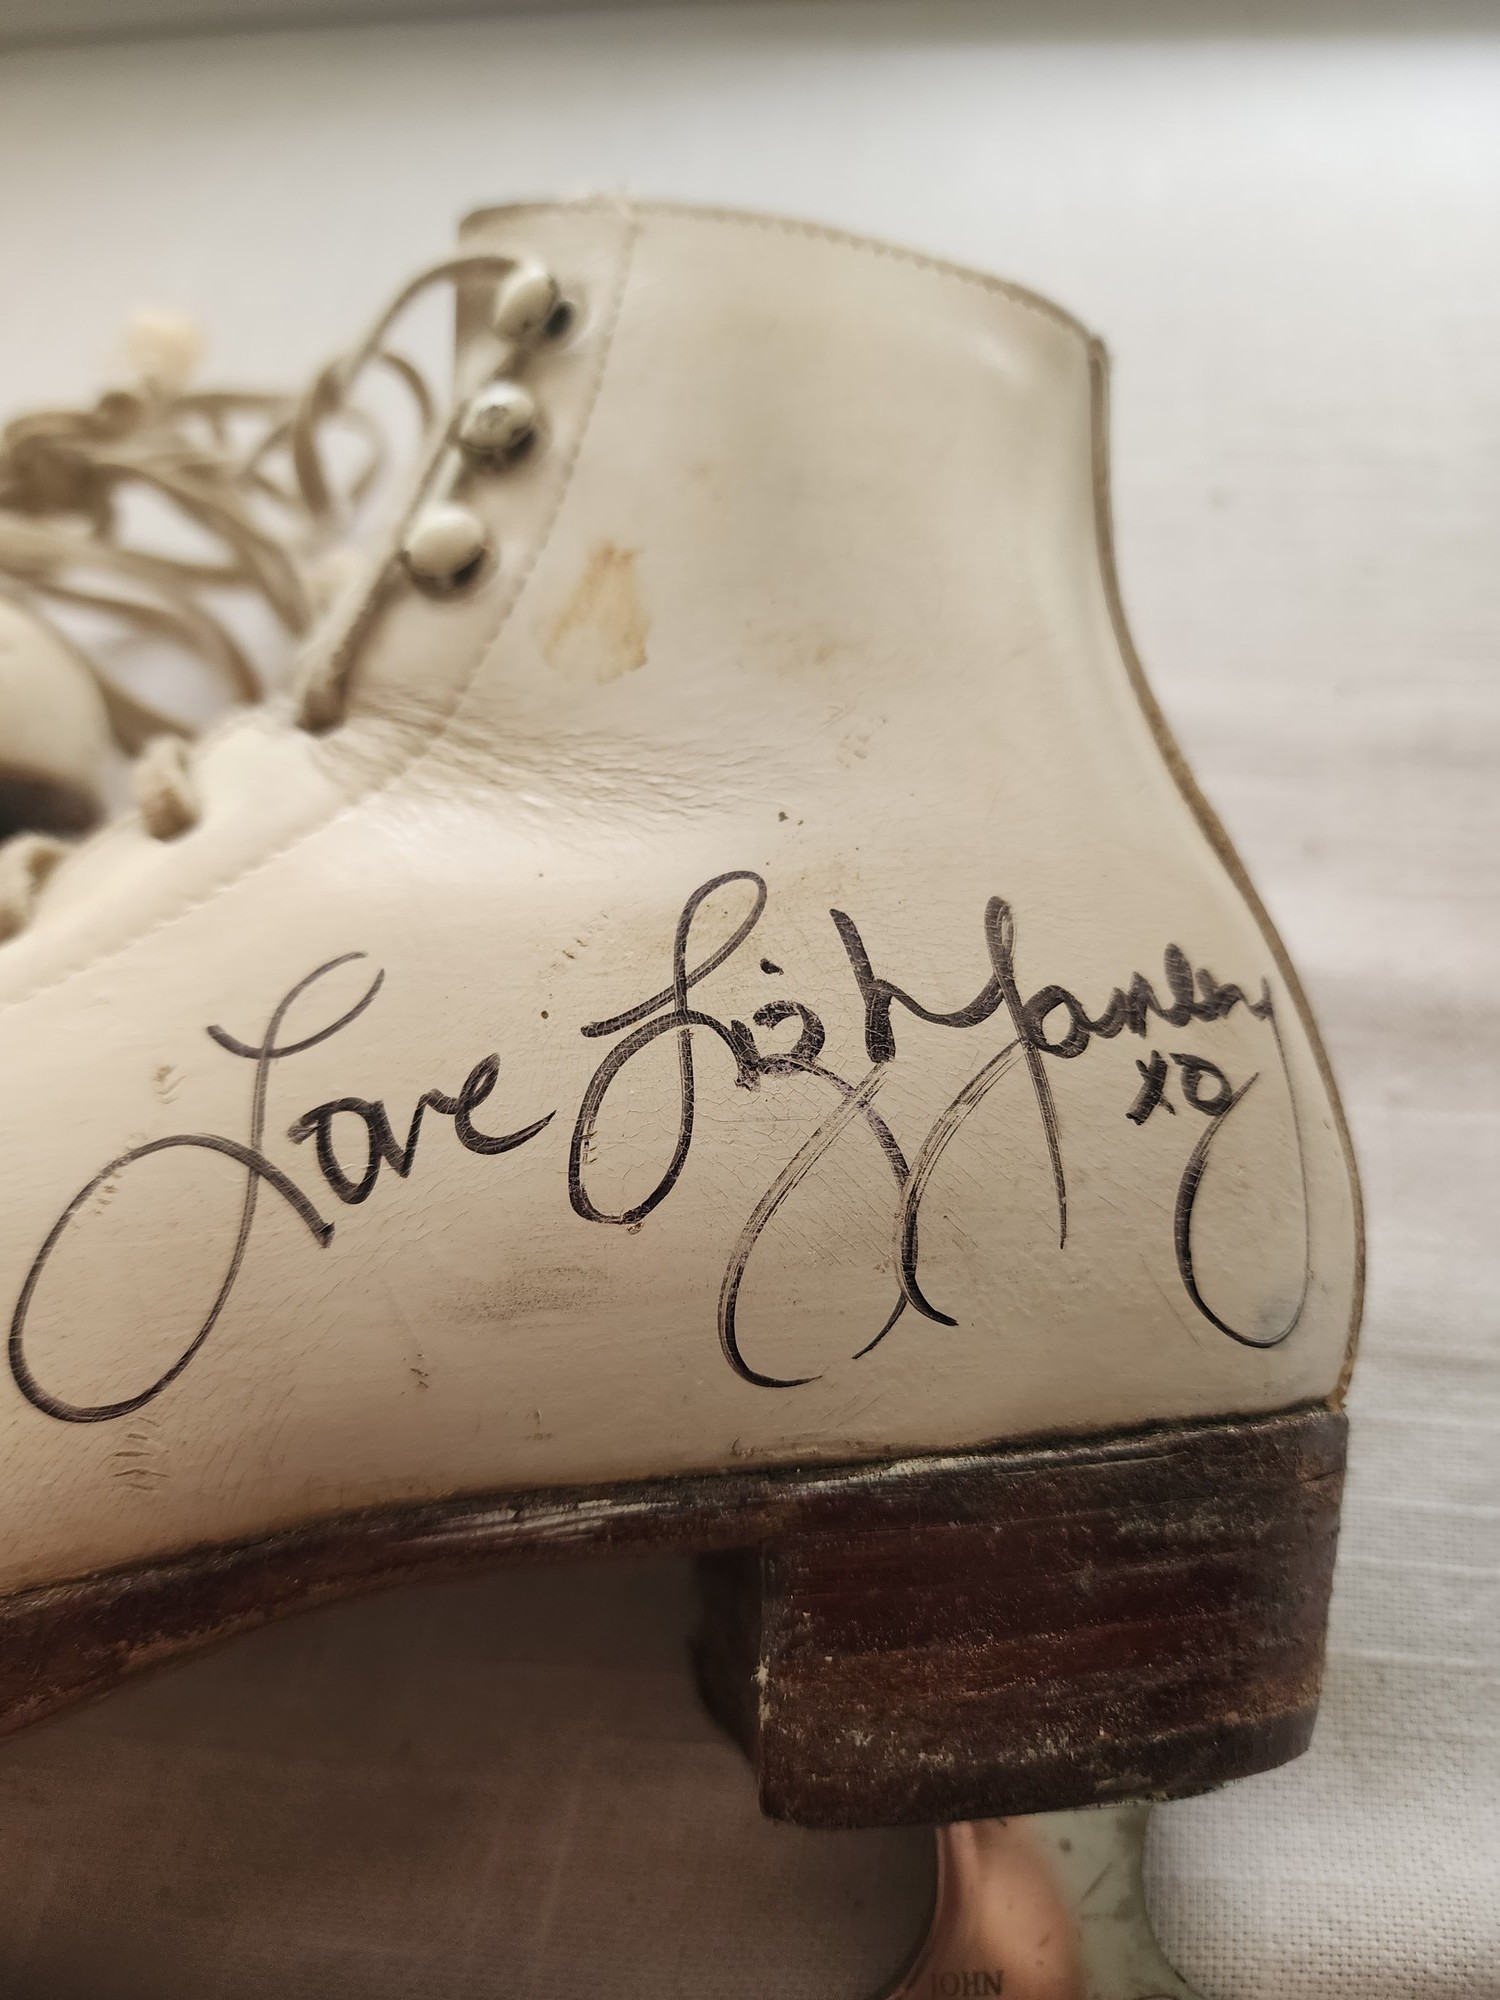 Love Liz Manley
xo
JOHN